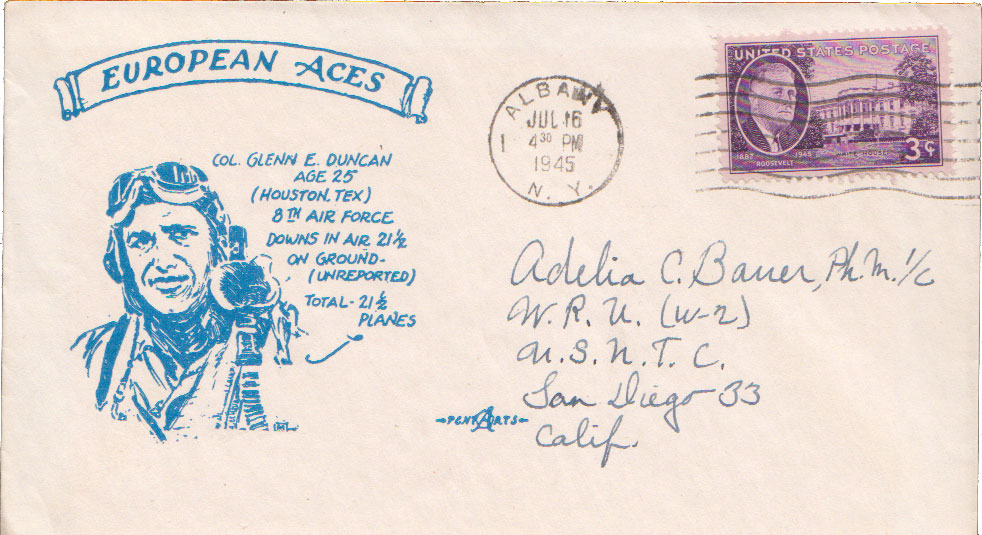 EUROPEAN ACES
COL. GLENN E. DUNCAN
AGE 25
(HOUSTON. TEX)
8TH AIR FORCE
DOWNS IN AIR 21½
ON GROUND-
(UNREPORTED)
TOTAL - 21½
PLANES
PENT ARTS
ALBANY
JUL 16
1 4 30 PM
1945
N. Y.
UNITED STATES POSTAGE
1882 1945
ROOSEVELT
WHITE HOUSE
3¢
Adelia C. Bauer, Ph.M. 1/c
W.R.U. (W-2)
U.S.N.T.C.
San Diego 33
Calif.